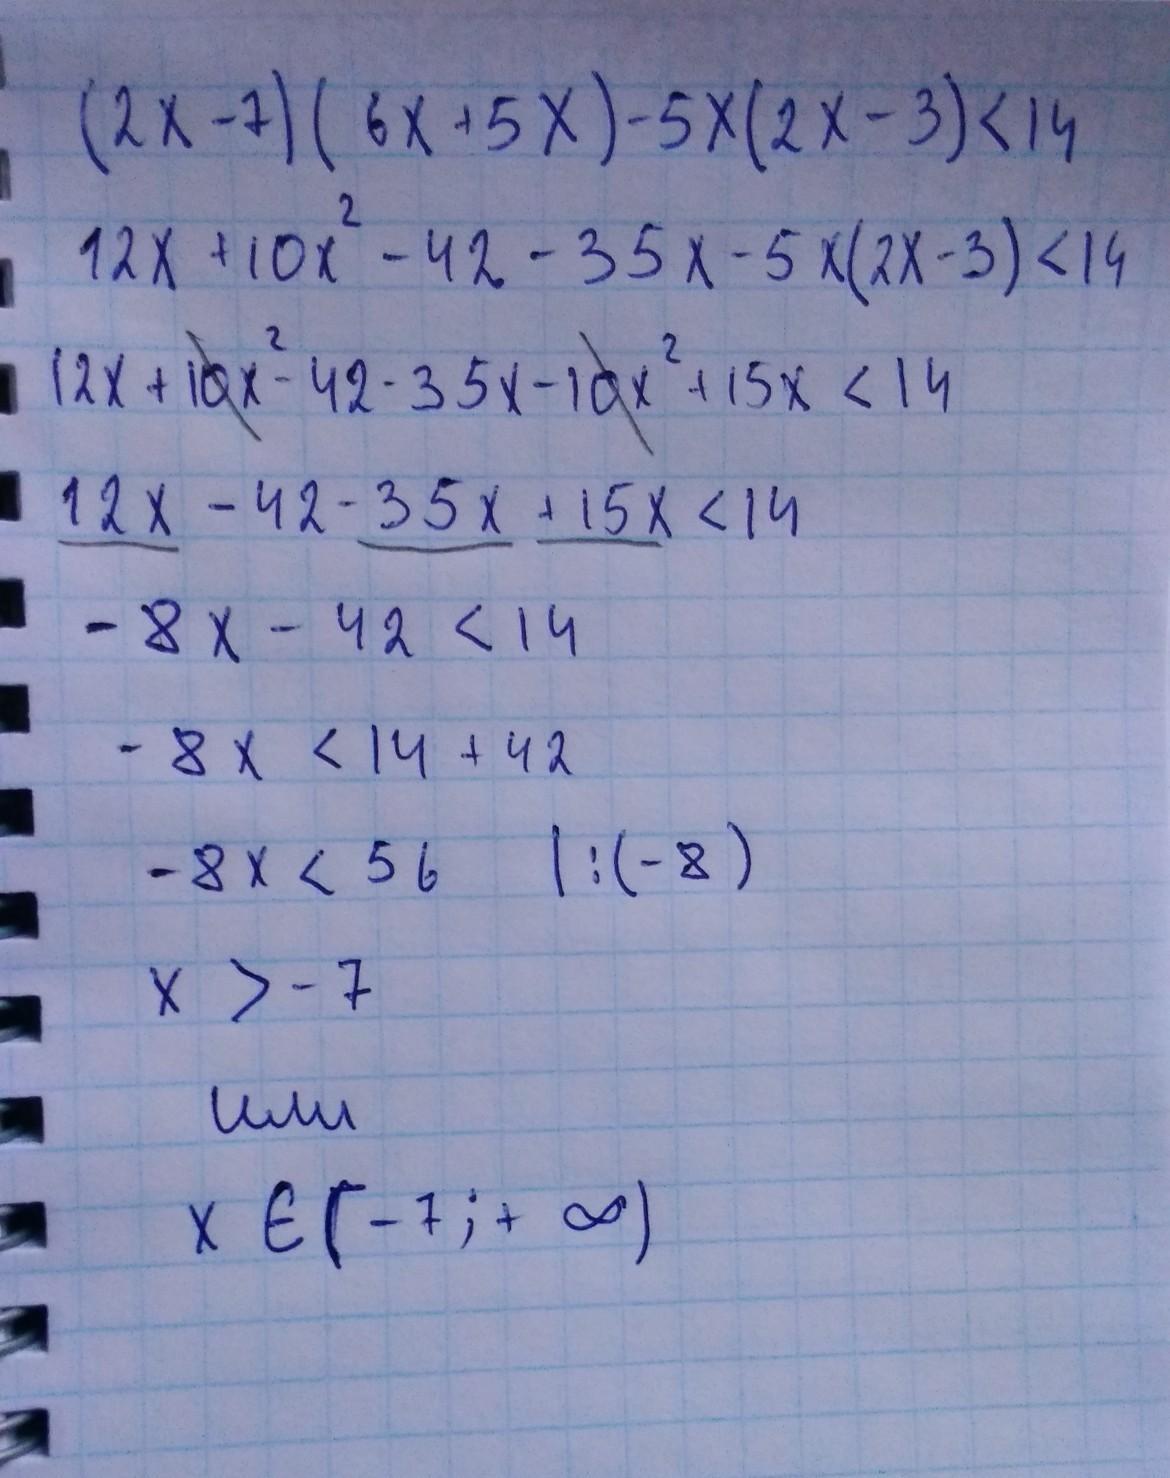 (2x-7)(6x+5x)-5x(2x-3)<14
12x+10x²-42-35x-5x(2x-3)<14
12x+10x²-42-35x-10x²+15x<14
12x-42-35x+15x<14
-8x-42<14
-8x<14+42
-8x<56 |:(-8)
x>-7
или
x∈(-7;+∞)